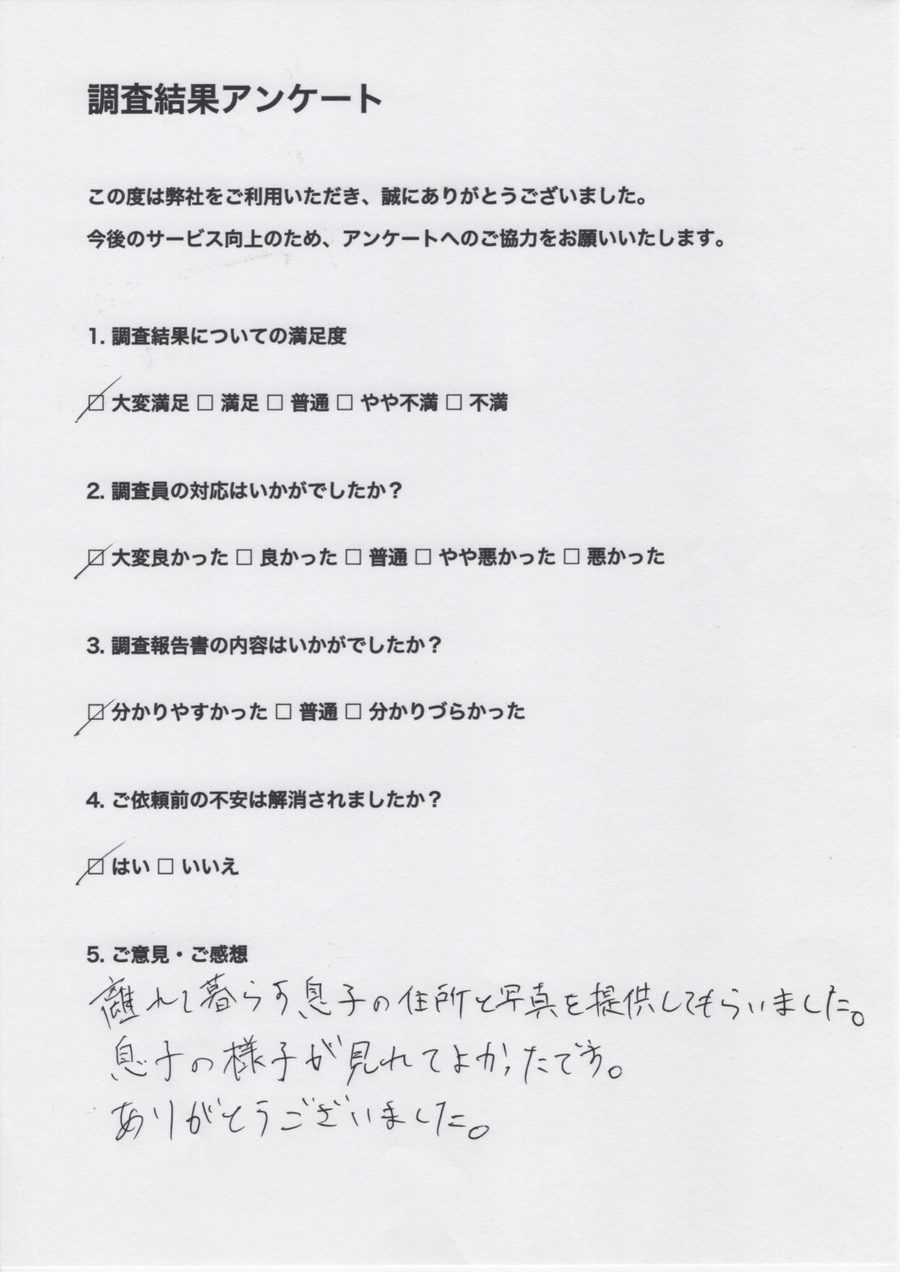 調査結果アンケート
この度は弊社をご利用いただき、誠にありがとうございました。
今後のサービス向上のため、アンケートへのご協力をお願いいたします。
1. 調査結果についての満足度
☑ 大変満足 □ 満足 □ 普通 □ やや不満 □ 不満
2. 調査員の対応はいかがでしたか？
☑ 大変良かった □ 良かった □ 普通 □ やや悪かった □ 悪かった
3. 調査報告書の内容はいかがでしたか？
☑ 分かりやすかった □ 普通 □ 分かりづらかった
4. ご依頼前の不安は解消されましたか？
☑ はい □ いいえ
5. ご意見・ご感想
離れて暮らす息子の住所と写真を提供してもらいました。
息子の様子が見れてよかったです。
ありがとうございました。